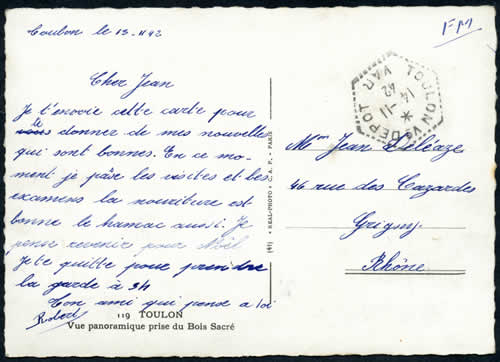 Toulon le 13-11 42
FM
Cher Jean
Je t'envoie cette carte pour
te donner de mes nouvelles
qui sont bonnes. En ce mo-
ment je passe les visites et les
examens la nouriture est
bonne le hamac aussi. Je
pense revenir pour Noël
Je te quitte pour prendre
la garde à 24
Ton ami qui pense a toi
Robert
119 TOULON
Vue panoramique prise du Bois Sacré
(41) « REAL-PHOTO » C. A. P. - PARIS
TOULON Vx DEPOT
14 -11
42
VAR
Mr Jean Deléaze
46 rue des Cazardes
Grigny
Rhône